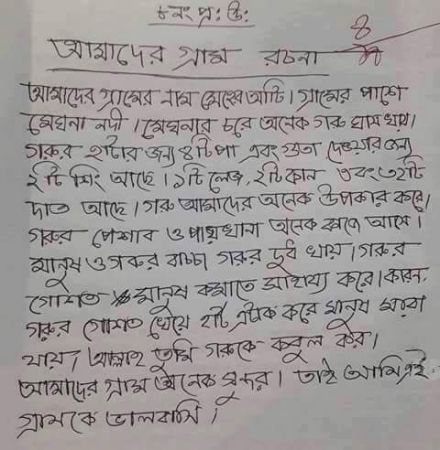 ৮নং প্র: উ:
আমাদের গ্রাম রচনা
আমাদের গ্রামের নাম মেহের আটি। গ্রামের পাশে
মেঘনা নদী। মেঘনার চরে অনেক গরু ঘাস খায়।
গরুর হাটার জন্য ৪টি পা এবং গুতা দেওয়ার জন্য
২টি শিং আছে। ১টি লেজ, ২টি কান এবং ৩২টি
দাত আছে। গরু আমাদের অনেক উপকার করে।
গরুর পেশাব ও পায়খানা অনেক কাজে আসে।
মানুষ ও গরুর বাচ্চা গরুর দুধ খায়। গরুর
গোশত মানুষ কমাতে সাহায্য করে। কারন,
গরুর গোশত খেয়ে হার্ট এটাক করে মানুষ মারা
যায়। আল্লাহ তুমি গরুকে কবুল কর।
আমাদের গ্রাম অনেক সুন্দর। তাই আমি এই
গ্রামকে ভালবাসি।